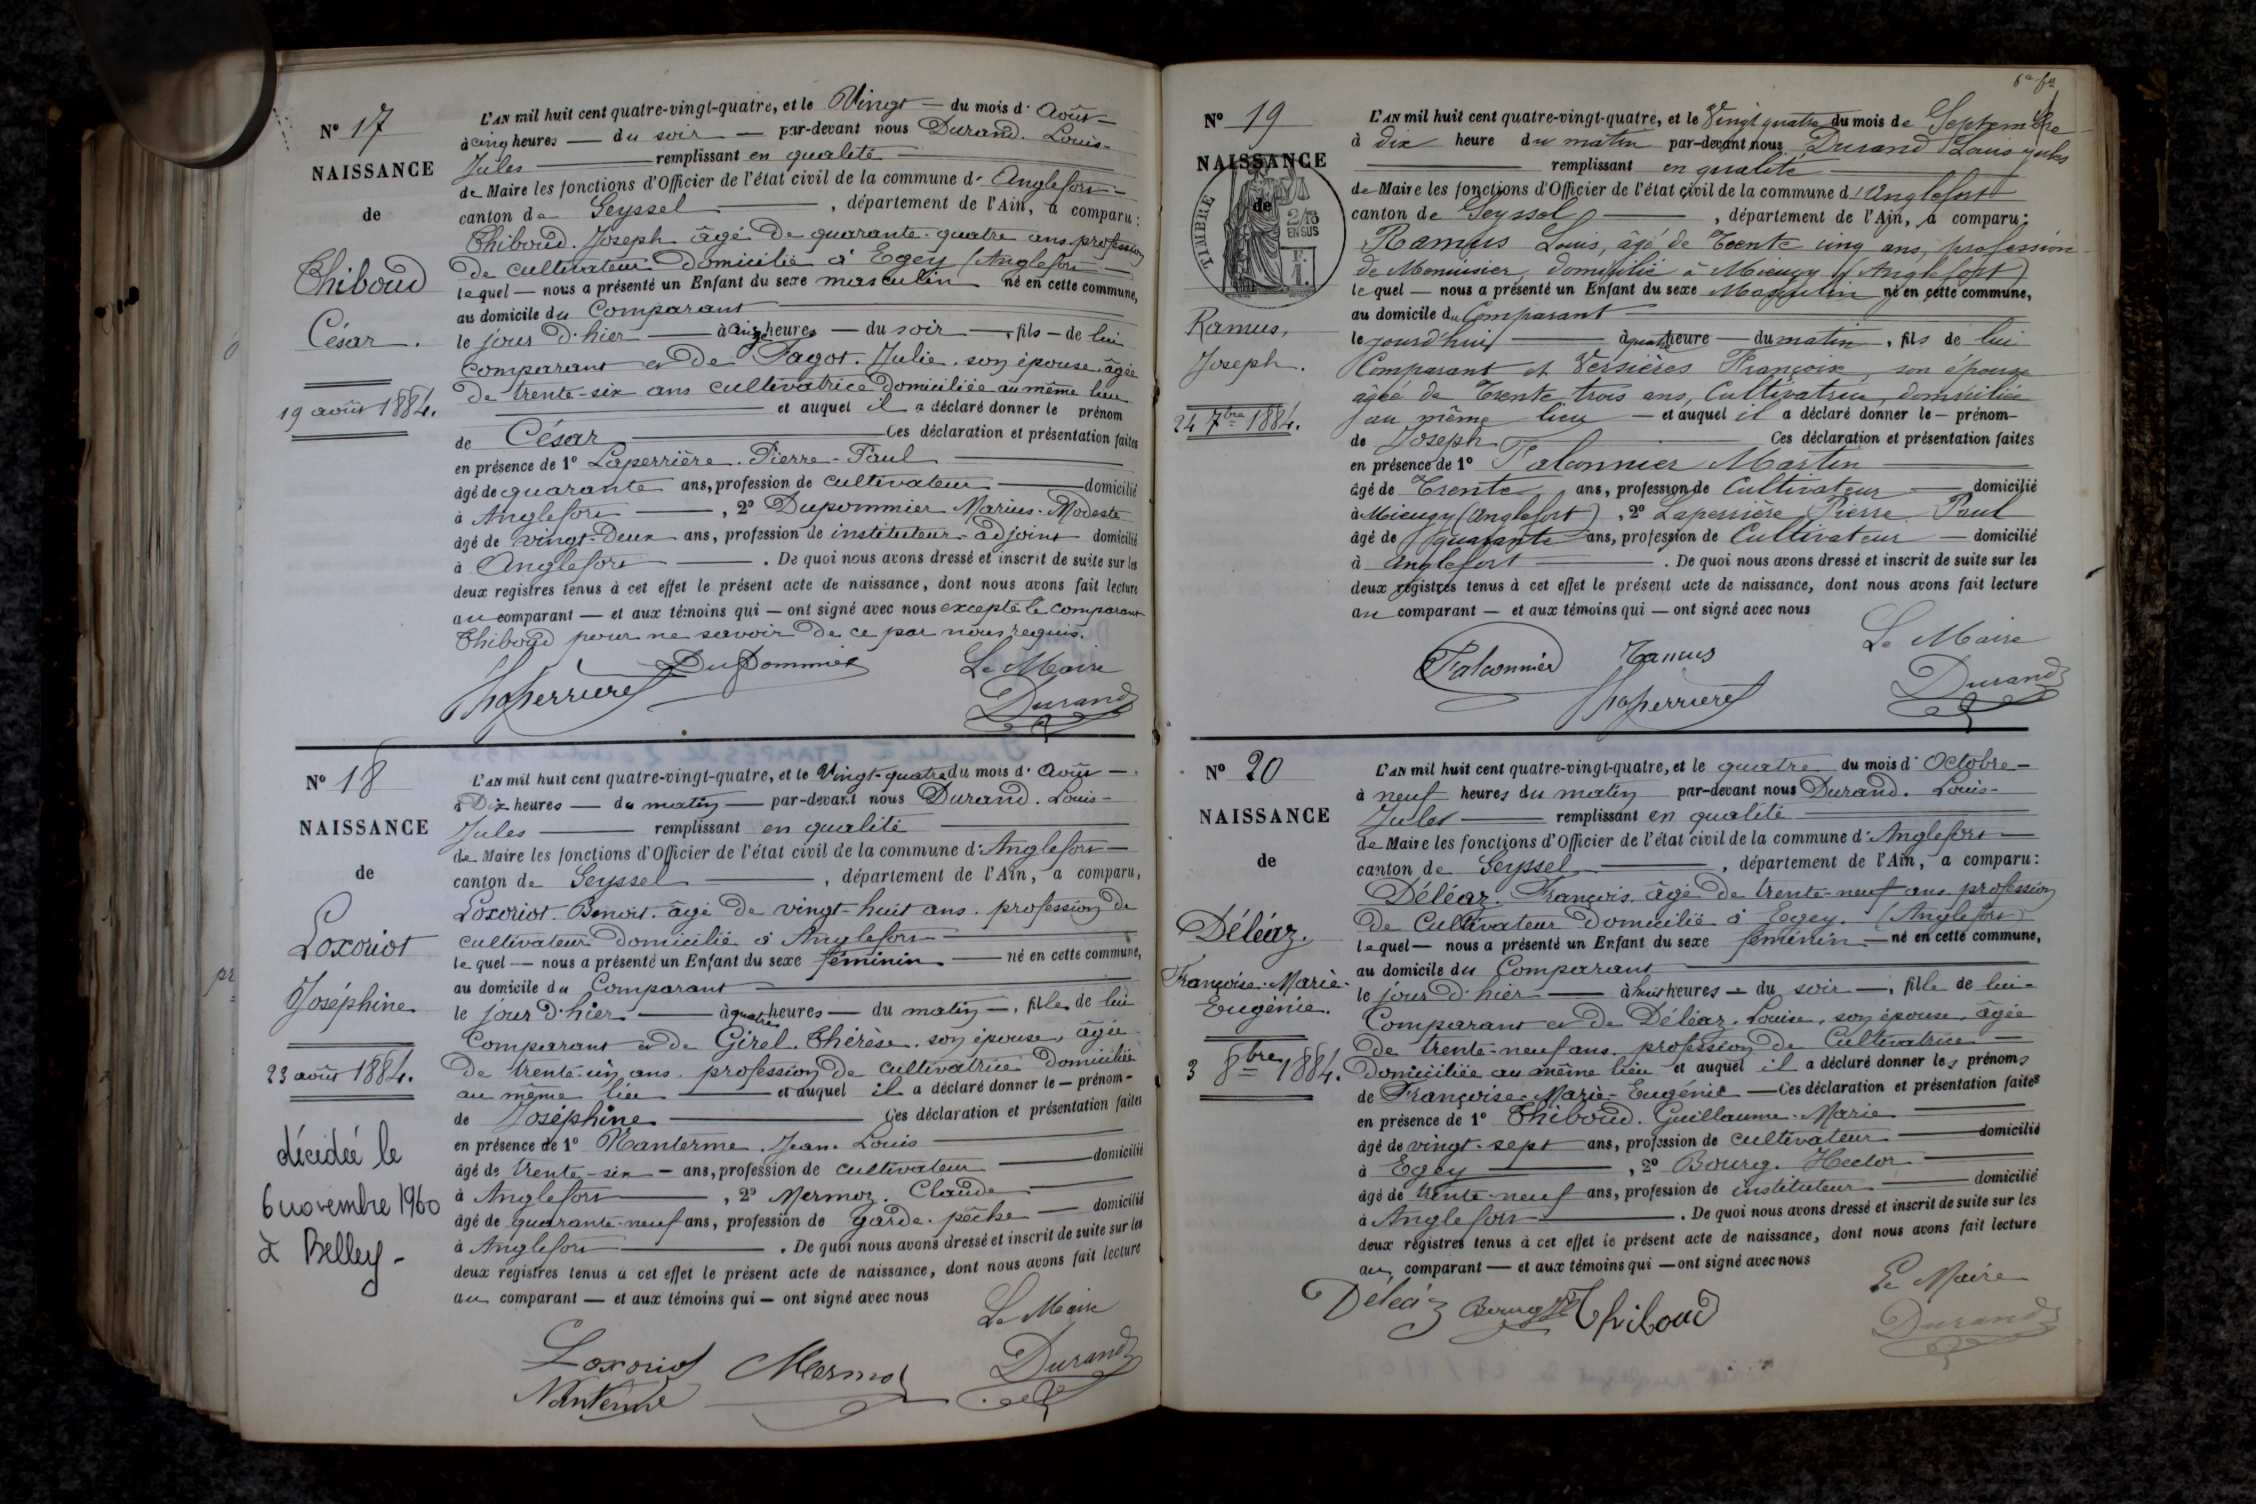 Nº 17
NAISSANCE
de
Thiboud
César.
19 août 1884.
L'AN mil huit cent quatre-vingt-quatre, et le Vingt — du mois d' Août —
à cinq heures — du soir — par-devant nous Durand. Louis-
Jules — remplissant en qualité —
de Maire les fonctions d'Officier de l'état civil de la commune d' Anglefort —
canton de Seyssel — , département de l'Ain, a comparu:
Thiboud. Joseph âgé de quarante-quatre ans profession
de cultivateur domicilié à Egey (Anglefort —
lequel — nous a présenté un Enfant du sexe masculin né en cette commune,
au domicile du Comparant —
le jour d'hier — à heures — du soir —, fils — de lui
comparant et de Fagot. Julie. son épouse. âgée
de trente-six ans cultivatrice domiciliée au même lieu
— et auquel il a déclaré donner le prénom
de César — Ces déclaration et présentation faites
en présence de 1º Laperrière. Pierre-Paul —
âgé de quarante ans, profession de cultivateur — domicilié
à Anglefort — , 2º Dupommier Marius-Modeste
âgé de vingt-deux ans, profession de instituteur-adjoint domicilié
à Anglefort — . De quoi nous avons dressé et inscrit de suite sur les
deux registres tenus à cet effet le présent acte de naissance, dont nous avons fait lecture
au comparant — et aux témoins qui — ont signé avec nous excepté le comparant
Thiboud pour ne savoir de ce par nous requis.
Dupommier Le Maire
Laperrière Durand
Nº 18
NAISSANCE
de
Loxoriot
Joséphine
23 août 1884.
décédée le
6 novembre 1960
à Belley -
L'AN mil huit cent quatre-vingt-quatre, et le Vingt-quatre du mois d' Août —
à Dix heures — du matin — par-devant nous Durand. Louis-
Jules — remplissant en qualité —
de Maire les fonctions d'Officier de l'état civil de la commune d' Anglefort —
canton de Seyssel — , département de l'Ain, a comparu,
Loxoriot. Benoit. âgé de vingt-huit ans. profession de
cultivateur domicilié à Anglefort —
lequel — nous a présenté un Enfant du sexe féminin — né en cette commune,
au domicile du Comparant —
le jour d'hier — à quatre heures — du matin —, fille de lui
Comparant et de Girel. Thérèse. son épouse, âgée
de trente-un ans. profession de cultivatrice domiciliée
au même lieu — et auquel il a déclaré donner le — prénom —
de Joséphine — Ces déclaration et présentation faites
en présence de 1º Nanterme. Jean. Louis —
âgé de trente-six — ans, profession de cultivateur — domicilié
à Anglefort — , 2º Mermoz. Claude —
âgé de quarante-neuf ans, profession de garde-pêche — domicilié
à Anglefort — . De quoi nous avons dressé et inscrit de suite sur les
deux registres tenus à cet effet le présent acte de naissance, dont nous avons fait lecture
au comparant — et aux témoins qui — ont signé avec nous
Le Maire
Loxoriot Mermoz Durand
Nanterme
Nº 19
NAISSANCE
de
TIMBRE
2/10
EN SUS
Ramus,
Joseph.
24 7bre 1884.
L'AN mil huit cent quatre-vingt-quatre, et le Vingt quatre du mois de Septembre
à dix heure du matin par-devant nous Durand Louis Jules
— remplissant en qualité —
de Maire les fonctions d'Officier de l'état civil de la commune d'Anglefort
canton de Seyssel — , département de l'Ain, a comparu:
Ramus Louis, âgé de Trente cinq ans, profession
de Menuisier, domicilié à Mieugy (Anglefort)
lequel — nous a présenté un Enfant du sexe Masculin né en cette commune,
au domicile du Comparant —
le jourd'hui — à quatre heure — du matin, fils de lui
Comparant et Versières Françoise, son épouse
âgée de Trente trois ans, Cultivatrice, domiciliée
au même lieu — et auquel il a déclaré donner le — prénom —
de Joseph — Ces déclaration et présentation faites
en présence de 1º Falconnier Martin —
âgé de Trente ans, profession de Cultivateur — domicilié
à Mieugy (Anglefort) , 2º Laperrière Pierre Paul
âgé de quarante ans, profession de Cultivateur — domicilié
à Anglefort — . De quoi nous avons dressé et inscrit de suite sur les
deux registres tenus à cet effet le présent acte de naissance, dont nous avons fait lecture
au comparant — et aux témoins qui — ont signé avec nous
Le Maire
Falconnier Ramus
Laperrière Durand
Nº 20
NAISSANCE
de
Déléaz.
Françoise-Marie-
Eugénie.
3 8bre 1884.
L'AN mil huit cent quatre-vingt-quatre, et le quatre du mois d' Octobre —
à neuf heures du matin par-devant nous Durand. Louis-
Jules — remplissant en qualité —
de Maire les fonctions d'Officier de l'état civil de la commune d' Anglefort —
canton de Seyssel — , département de l'Ain, a comparu:
Déléaz. François. âgé de trente-neuf ans profession
de Cultivateur domicilié à Egey. (Anglefort)
lequel — nous a présenté un Enfant du sexe féminin — né en cette commune,
au domicile du Comparant —
le jour d'hier — à huit heures — du soir —, fille de lui —
Comparant et de Déléaz. Louise. son épouse. âgée
de trente-neuf ans. profession de Cultivatrice —
domiciliée au même lieu et auquel il a déclaré donner les prénoms
de Françoise-Marie-Eugénie — Ces déclaration et présentation faites
en présence de 1º Thiboud. Guillaume-Marie —
âgé de vingt-sept ans, profession de cultivateur — domicilié
à Egey — , 2º Bourg. Hector —
âgé de trente-neuf ans, profession de instituteur — domicilié
à Anglefort — . De quoi nous avons dressé et inscrit de suite sur les
deux registres tenus à cet effet le présent acte de naissance, dont nous avons fait lecture
au comparant — et aux témoins qui — ont signé avec nous
Le Maire
Déléaz Bourg Thiboud Durand